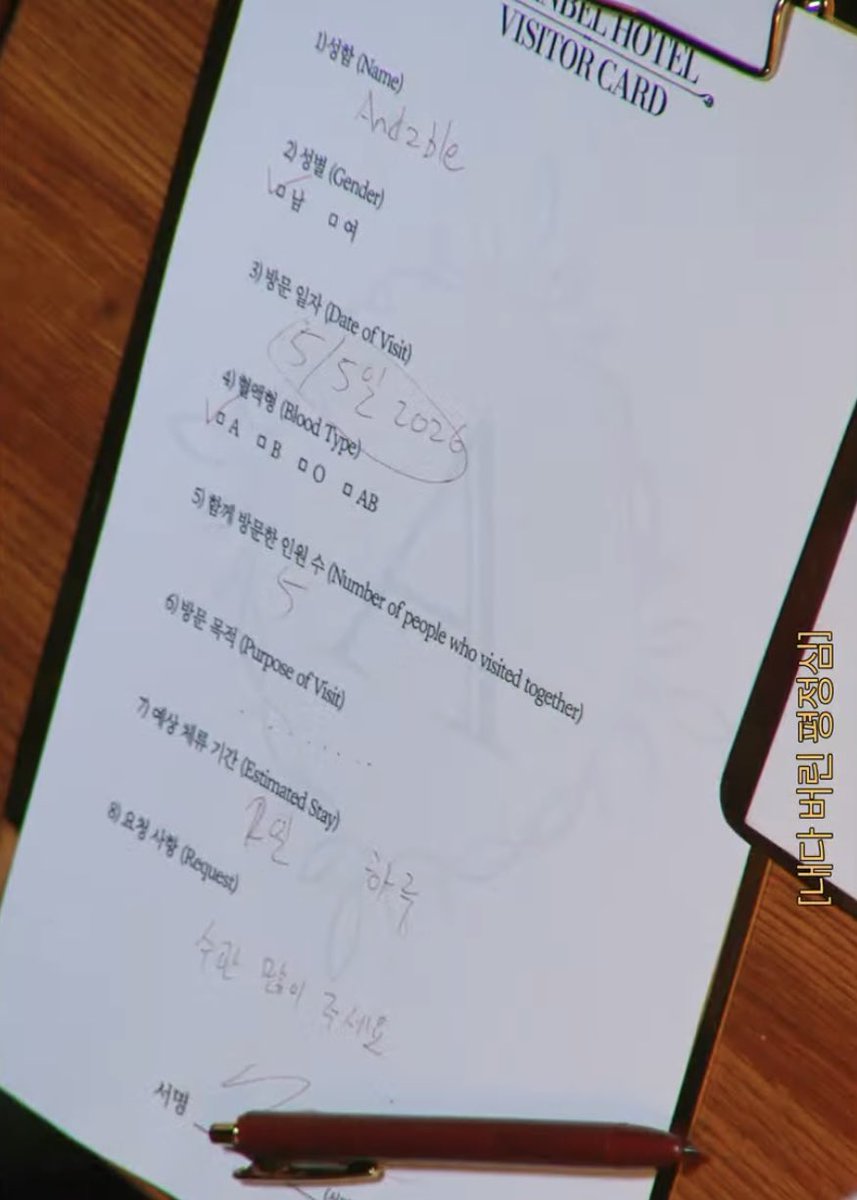 NBEL HOTEL
VISITOR CARD
1) 성함 (Name)
And2ble
2) 성별 (Gender)
남 여
3) 방문 일자 (Date of Visit)
5/5일 2026
4) 혈액형 (Blood Type)
A B O AB
5) 함께 방문한 인원 수 (Number of people who visited together)
5
6) 방문 목적 (Purpose of Visit)
.......
7) 예상 체류 기간 (Estimated Stay)
하루
8) 요청 사항 (Request)
수관 많이 주세요
서명
[내다 버린 평정심]